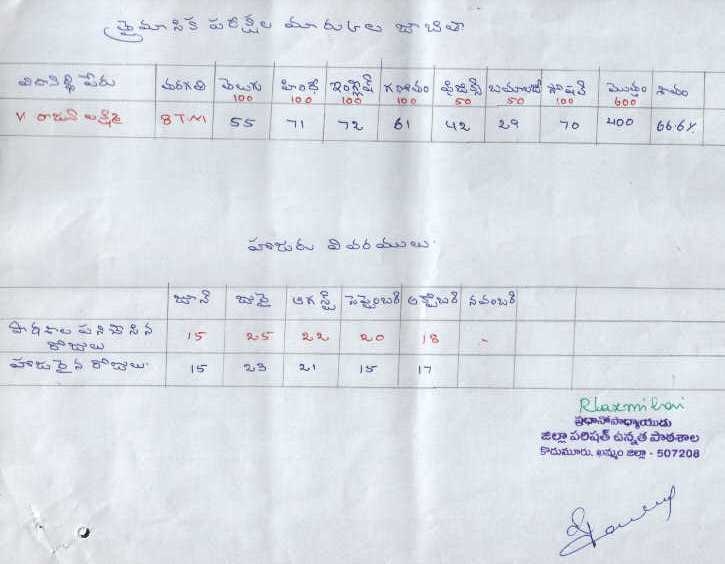 త్రైమాసిక పరీక్షల మార్కుల జాబితా
విద్యార్థి పేరు తరగతి తెలుగు హిందీ ఇంగ్లీష్ గణితం ఫిజిక్స్ బయాలజీ సోషల్ మొత్తం శాతం
100 100 100 100 50 50 100 600
V రాజు లక్ష్మి 8 TM 55 71 72 61 42 29 70 400 66.6%
హాజరు వివరములు.
జూన్ జూలై ఆగస్ట్ సెప్టెంబర్ అక్టోబర్ నవంబర్
పాఠశాల పనిచేసిన రోజులు 15 25 22 20 18 -
హాజరైన రోజులు. 15 23 21 15 17
RLaxmi bai
ప్రధానోపాధ్యాయుడు
జిల్లా పరిషత్ ఉన్నత పాఠశాల
కొదుమూరు, ఖమ్మం జిల్లా - 507208